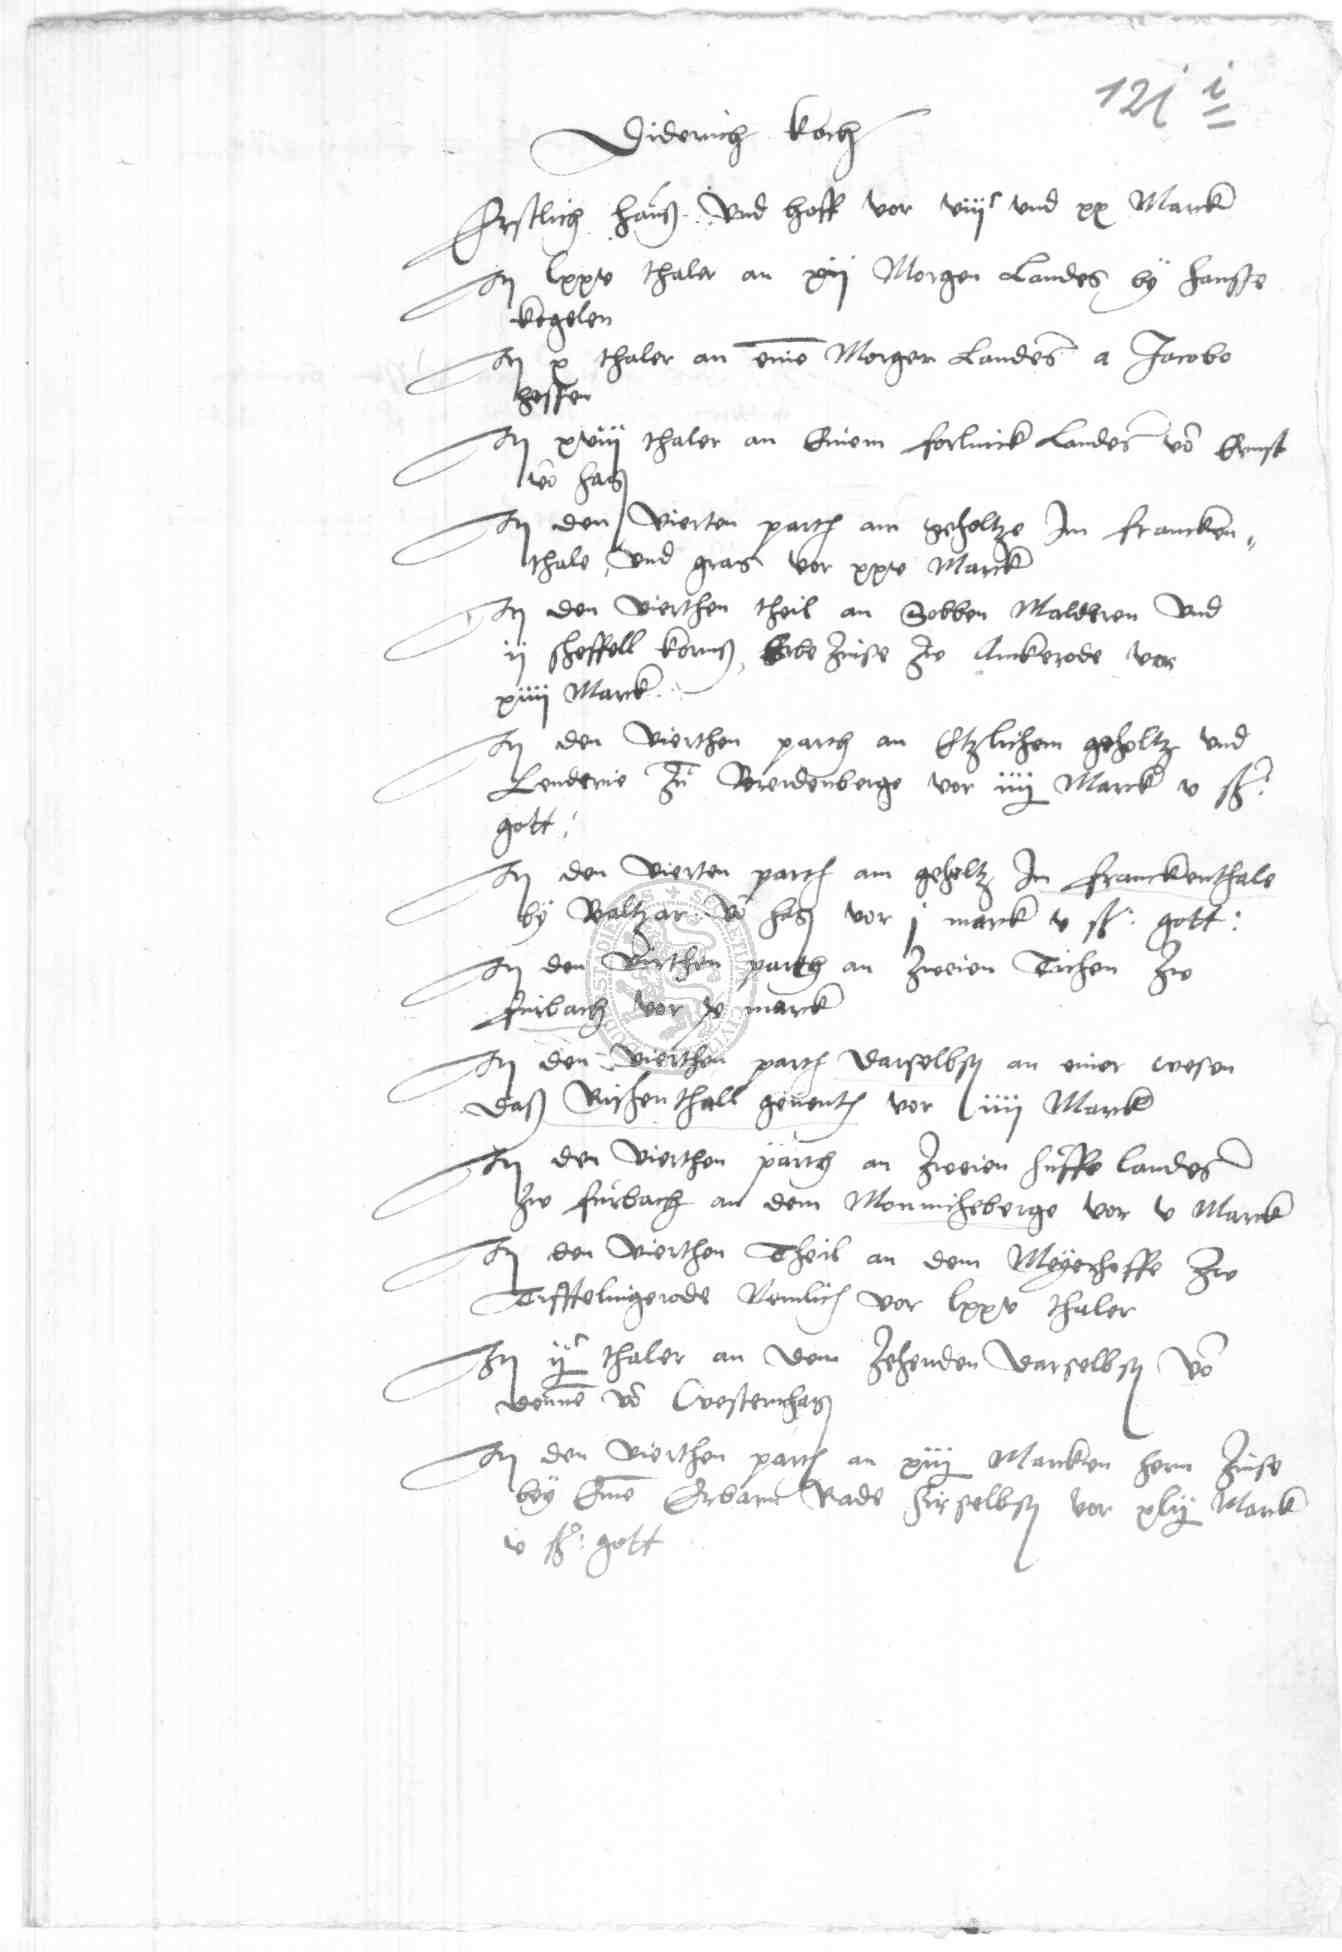 121 i
Diderich Koch
Erstlich hauß vnd hoff vor viijc vnd xx Marck
It lxxv thaler an xij Morgen Landes by Hansse
Kegelen
It x thaler an eine Morgen Landes a Jacobo
Hessen
It xviij thaler an Einem forlinck Landes vo Ernst
vo Hag
It den vierten parth am geholtze Im francken
thale vnd gras vor xxv Marck
It den vierthen theil an Sobben Malderen vnd
ij scheffell korns, Erbe Zinse zw vor
xiiij Marck
It den vierthen parth an Etzlichem geholtz vnd
Lenderie Zu vor iiij Marck v sch:
gott:
It den vierten parth am geholtz Im franckenthale
by Baltzar vo Hag vor j marck v sch: gott:
It den virthen parth an Zweien Tichen zw
furbach vor xv marck
It den vierthen parth darselbst an einer wesen
daß thall genent vor liiij Marck
It den vierthen parth an Zweien huffe landes
zw furbach an dem Monnicheberge vor v Marck
It den vierthen Theil an dem Meyerhoffe zw
Tifftelingerode vor lxxv thaler
It ijc thaler an dem Zehenden darselbst vo
denne vo Westernhag
It den vierthen parth an xiij Marcken hern Zinse
bey Eine Erbarn Rade hirselbst vor xlij Marck
v sch: gott